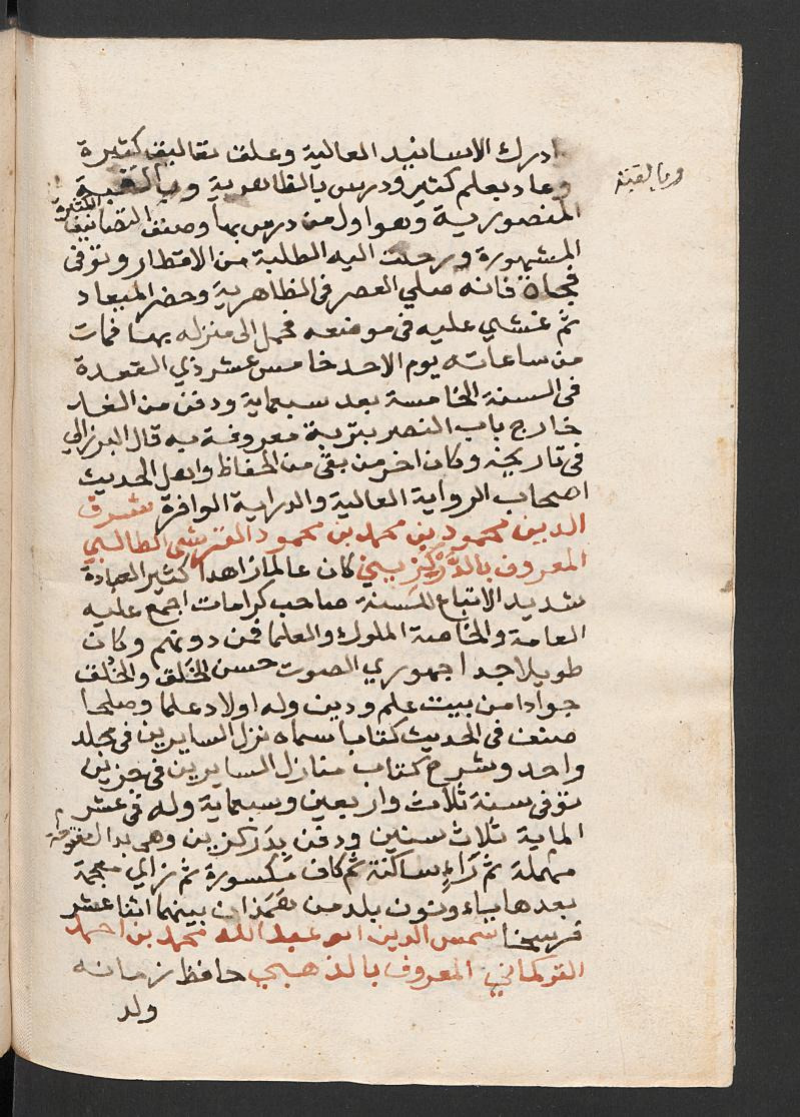 ادرك الاسانيد العالية وعلق تعاليق كثيرة
وعاد بعلم كثير ودرس بالظاهرية وبالقبة
وبالقبة
المنصورية وهو اول من درس بها وصنف التصانيف الكثيرة
المشهورة ورحلت اليه الطلبة من الاقطار وتوفى
فجاة فانه صلي العصر فى الظاهرية وحضر الميعاد
ثم غشي عليه فى موضعه فحمل الى منزله بها فمات
من ساعاته يوم الاحد خامس عشر ذي القعدة
فى السنة الخامسة بعد سبعماية ودفن من الغد
خارج باب النصر بتربة معروفة به قال البرزالي
فى تاريخه وكان اخر من بقى من الحفاظ واهل الحديث
اصحاب الرواية العالية والدراية الوافرة شرف
الدين محمود بن محمد بن محمود القرشي الطالبي
المعروف بالدَّرْكَزيني كان عالما زاهدا كثير العبادة
شديد الاتباع للسنة صاحب كرامات اجمع عليه
العامة والخاصة الملوك والعلما فمن دونهم وكان
طويلا جدا جهوري الصوت حسن الخَلق والخُلق
جوادا من بيت علم ودين وله اولاد علما وصلحا
صنف فى الحديث كتابا سماه نزل السايرين فى مجلد
واحد وشرح كتاب منازل السايرين فى جزين
توفى سنة ثلاث واربعين وسبعماية وله فى عشر
الماية ثلاث سنين ودفن بدركزين وهى بدال مفتوحة
مهملة ثم رَاءٍ ساكنة ثم كاف مكسورة ثم زاي معجمة
بعدها ياء ونون بلد من همَذان بينهما اثنا عشر
فرسخا شمس الدين ابو عبد الله محمد بن احمد
التركماني المعروف بالذهبي حافظ زمانه
ولد